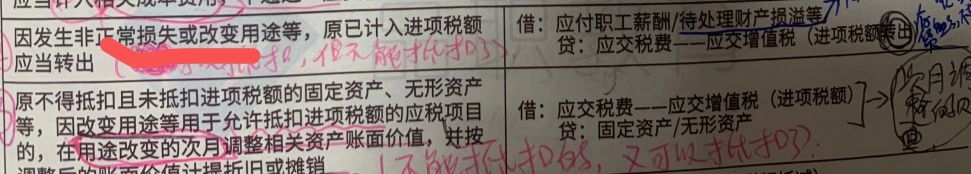 应当计入相关成本费用，不通过
因发生非正常损失或改变用途等，原已计入进项税额
应当转出
但又不能抵扣了)
借：应付职工薪酬/待处理财产损溢等
贷：应交税费——应交增值税（进项税额转出）
原不得抵扣且未抵扣进项税额的固定资产、无形资产
等，因改变用途等用于允许抵扣进项税额的应税项目
的，在用途改变的次月调整相关资产账面价值，并按
调整后的账面价值计提折旧或摊销
借：应交税费——应交增值税（进项税额）
贷：固定资产/无形资产
次月调
(不能抵扣的，又可以抵扣了).